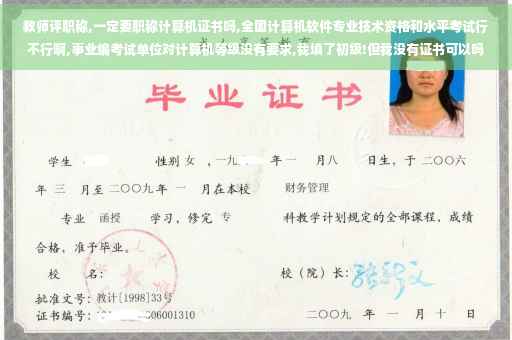 教师评职称,一定要职称计算机证书吗,全国计算机软件专业技术资格和水平考试行
不行啊,事业编考试单位对计算机等级没有要求,我填了初级!但我没有证书可以吗
毕业证书
学生 性别 女 ,一九 年一 月八 日生，于 二〇〇六
年 三 月至 二〇〇九 年 一 月在本校 财务管理
专业 函授 学习，修完 专 科教学计划规定的全部课程，成绩
合格，准予毕业。
校 名： 校（院）长：
批准文号：教计[1998]33号
证书编号： 06001310 二〇〇九 年 一 月 十 日